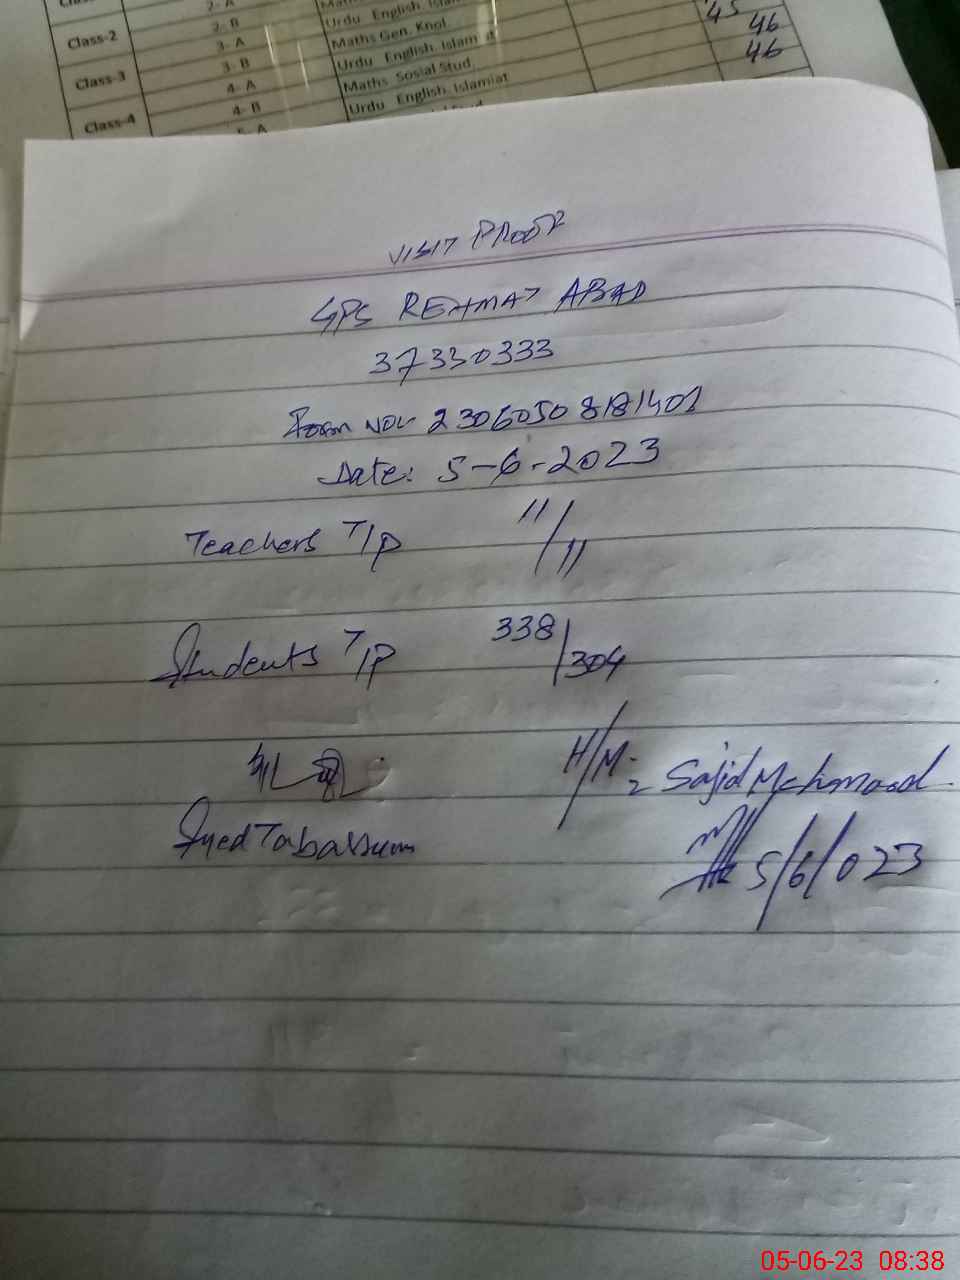 2- A
Class-2
2- B
Urdu English Islam
3- A
Maths Gen. Knol.
45
46
Class-3
3- B
Urdu English. Islam at
46
4- A
Maths Sosial Stud.
Class-4
4- B
Urdu English. Islamiat
5- A
VISIT PROOF
GPS REHMAT ABAD
37330333
Form NO:- 2306050 8181401
Date: 5-6-2023
Teachers T/P 11/11
Students T/P 338/304
H/M:- Sajid Mehmood
Syed Tabassum
5/6/023
05-06-23 08:38